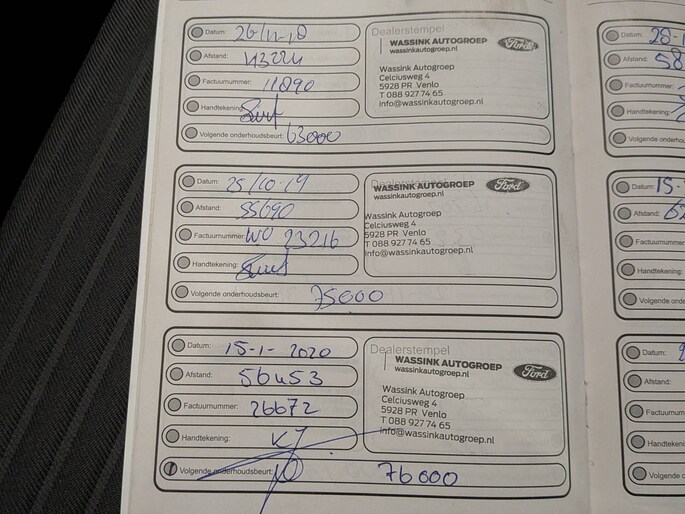 Datum: 26/11-18
Dealerstempel
Afstand: 43224
WASSINK AUTOGROEP
wassinkautogroep.nl
Ford
Factuurnummer: 11890
Handtekening:
Wassink Autogroep
Celciusweg 4
5928 PR Venlo
T 088 927 74 65
info@wassinkautogroep.nl
Volgende onderhoudsbeurt: 63000
Datum: 25/10-19
Dealerstempel
Afstand: 55690
WASSINK AUTOGROEP
wassinkautogroep.nl
Ford
Factuurnummer: WO 23216
Handtekening:
Wassink Autogroep
Celciusweg 4
5928 PR Venlo
T 088 927 74 65
info@wassinkautogroep.nl
Volgende onderhoudsbeurt: 75000
Datum: 15-1-2020
Dealerstempel
Afstand: 56453
WASSINK AUTOGROEP
wassinkautogroep.nl
Ford
Factuurnummer: 26672
Handtekening:
Wassink Autogroep
Celciusweg 4
5928 PR Venlo
T 088 927 74 65
info@wassinkautogroep.nl
Volgende onderhoudsbeurt: 76000
Datum: 28-
Afstand: 58
Factuurnummer:
Handtekening:
Volgende
Datum: 15-
Afstand:
Factuurnummer:
Handtekening:
Volgende
Datum:
Afstand:
Factuurnummer:
Handtekening:
Volgende